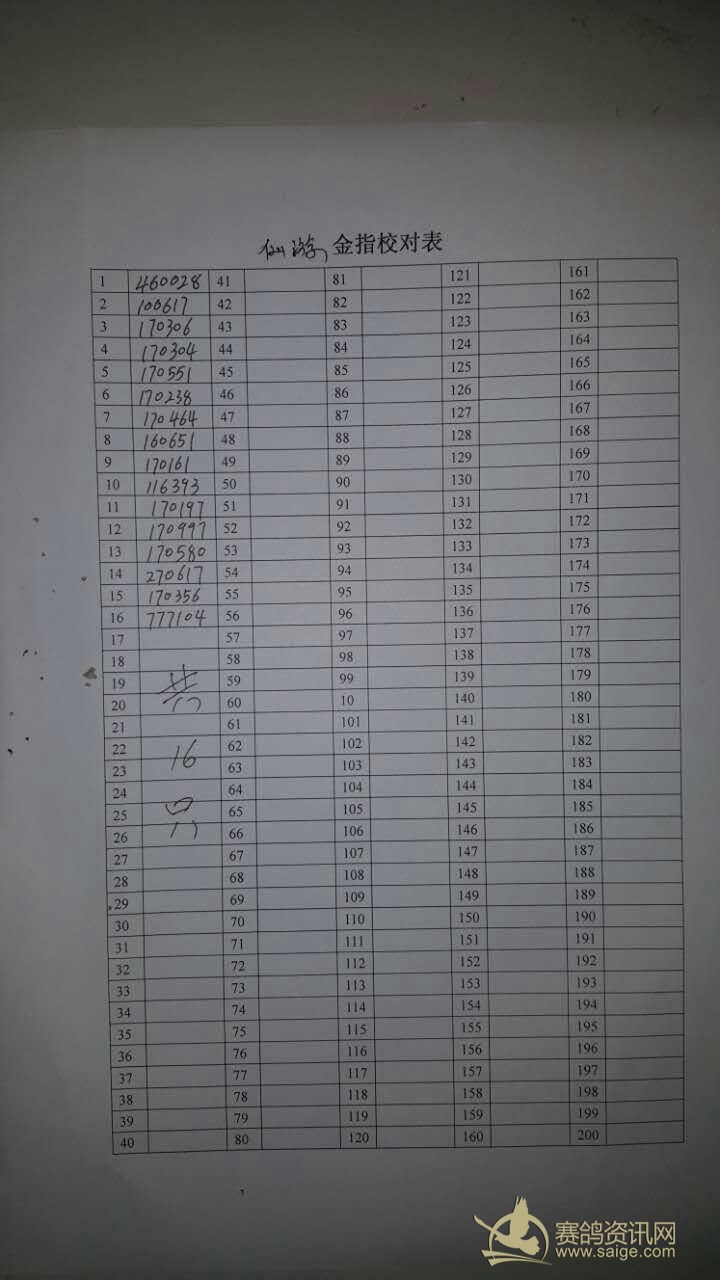 仙游 金指校对表
1 460028 41 81 121 161
2 100617 42 82 122 162
3 170306 43 83 123 163
4 170304 44 84 124 164
5 170551 45 85 125 165
6 170238 46 86 126 166
7 170464 47 87 127 167
8 160651 48 88 128 168
9 170161 49 89 129 169
10 116393 50 90 130 170
11 170197 51 91 131 171
12 170997 52 92 132 172
13 170580 53 93 133 173
14 270617 54 94 134 174
15 170356 55 95 135 175
16 777104 56 96 136 176
17 57 97 137 177
18 58 98 138 178
19 59 99 139 179
20 共 60 10 140 180
21 61 101 141 181
22 62 102 142 182
23 16 63 103 143 183
24 64 104 144 184
25 65 105 145 185
26 66 106 146 186
27 67 107 147 187
28 68 108 148 188
29 69 109 149 189
30 70 110 150 190
31 71 111 151 191
32 72 112 152 192
33 73 113 153 193
34 74 114 154 194
35 75 115 155 195
36 76 116 156 196
37 77 117 157 197
38 78 118 158 198
39 79 119 159 199
40 80 120 160 200
赛鸽资讯网
www.saige.com